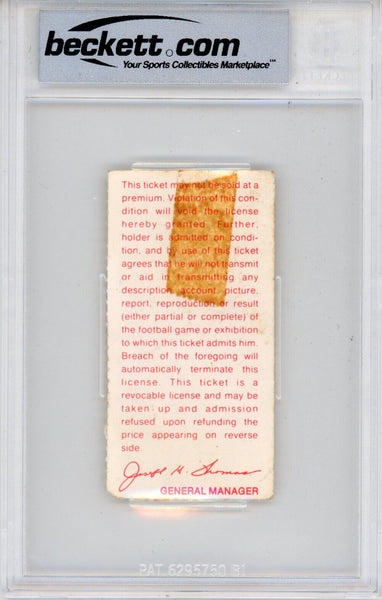 beckett.com
Your Sports Collectibles Marketplace™
This ticket may not be sold at a
premium. Violation of this con-
dition will void the license
hereby granted. Further,
holder is admitted on condi-
tion, and by use of this ticket
agrees that he will not transmit
or aid in transmitting any
description, account, picture,
report, reproduction or result
(either partial or complete) of
the football game or exhibition
to which this ticket admits him.
Breach of the foregoing will
automatically terminate this
license. This ticket is a
revocable license and may be
taken up and admission
refused upon refunding the
price appearing on reverse
side.
Joseph H. Thomas
GENERAL MANAGER
PAT 6295750 B1